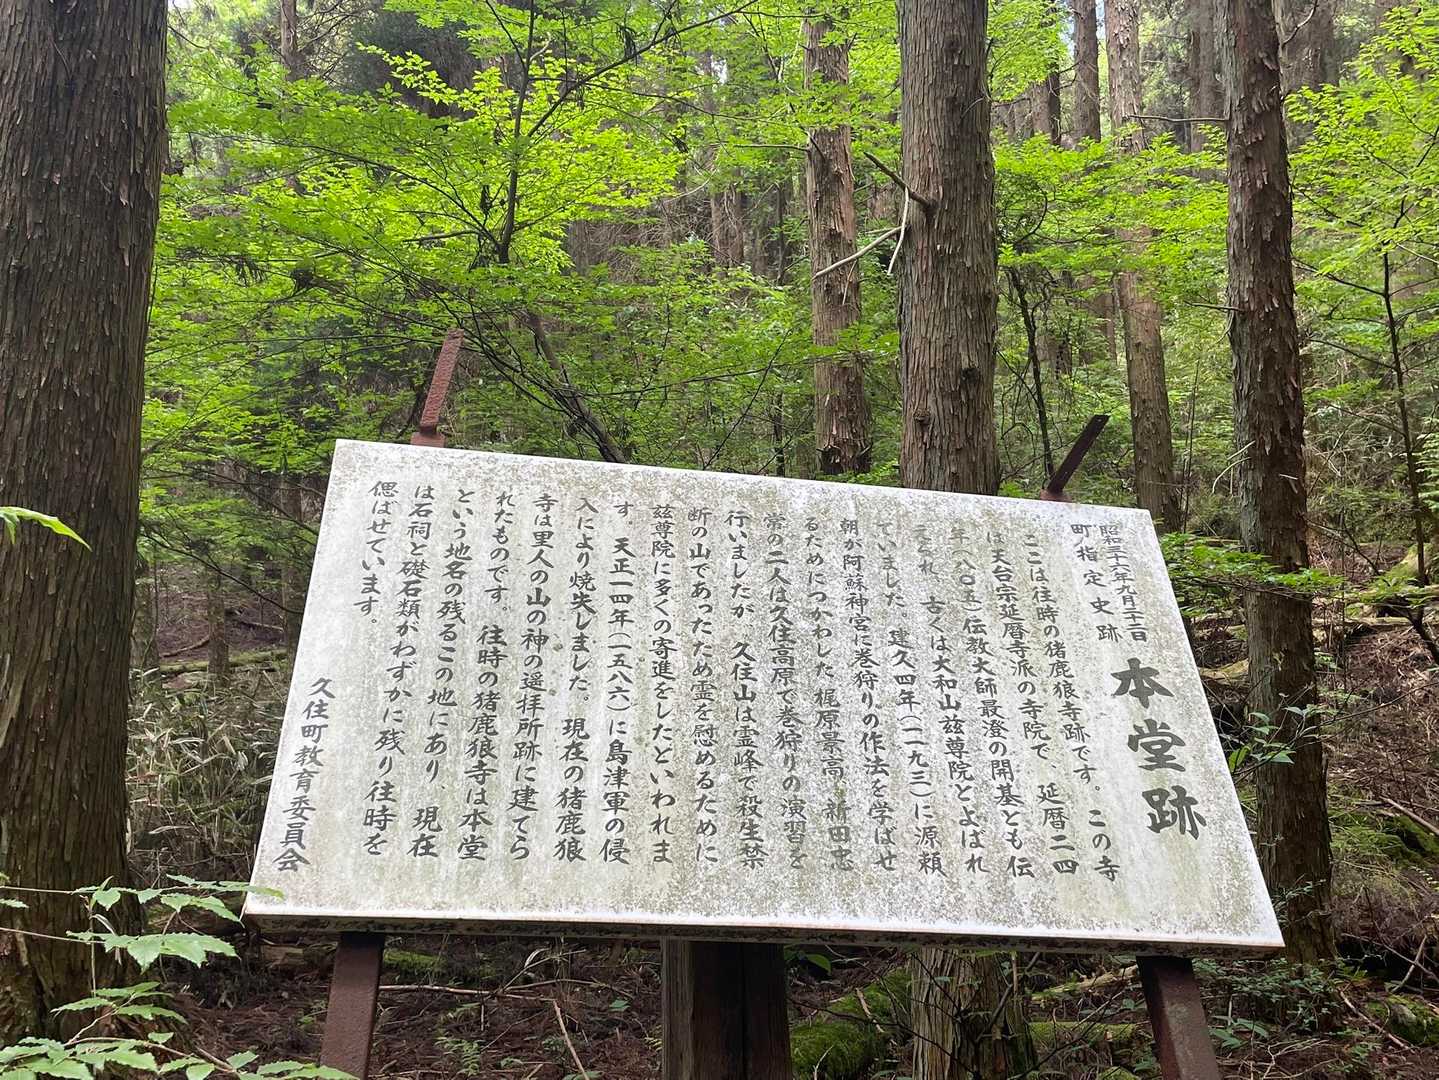 本堂跡
昭和三十六年九月二十二日
町指定史跡
ここは往時の猪鹿狼寺跡です。この寺
は天台宗延暦寺派の寺院で、延暦二四
年（八〇五）伝教大師最澄の開基とも伝
えられ、古くは大和山玆尊院とよばれ
ていました。建久四年（一一九三）に源頼
朝が阿蘇神宮に巻狩りの作法を学ばせ
るためにつかわした梶原景高、新田忠
常の二人は久住高原で巻狩りの演習を
行いましたが、久住山は霊峰で殺生禁
断の山であったため霊を慰めるために
玆尊院に多くの寄進をしたといわれま
す。天正一四年（一五八六）に島津軍の侵
入により焼失しました。現在の猪鹿狼
寺は里人の山の神の遥拝所跡に建てら
れたものです。往時の猪鹿狼寺は本堂
という地名の残るこの地にあり、現在
は石祠と礎石類がわずかに残り往時を
偲ばせています。
久住町教育委員会